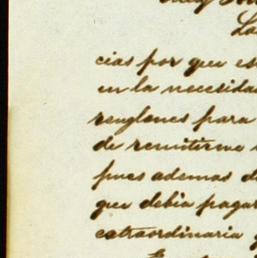 La
cias por que es
en la necesida
renglones para
de remitirme
pues ademas d
que debia pagar
extraordinaria